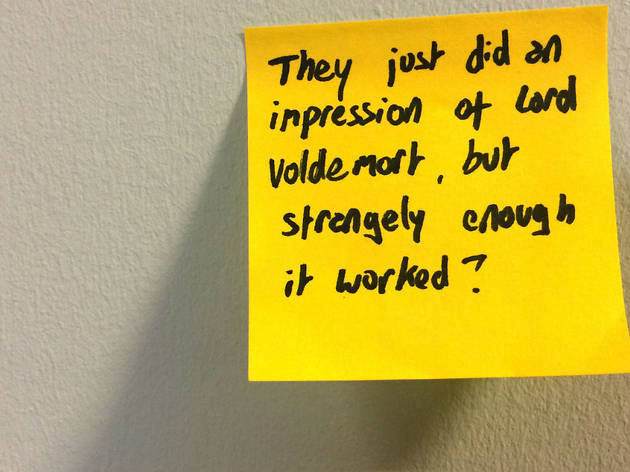 They just did an
impression of Lord
Voldemort, but
strangely enough
it worked?